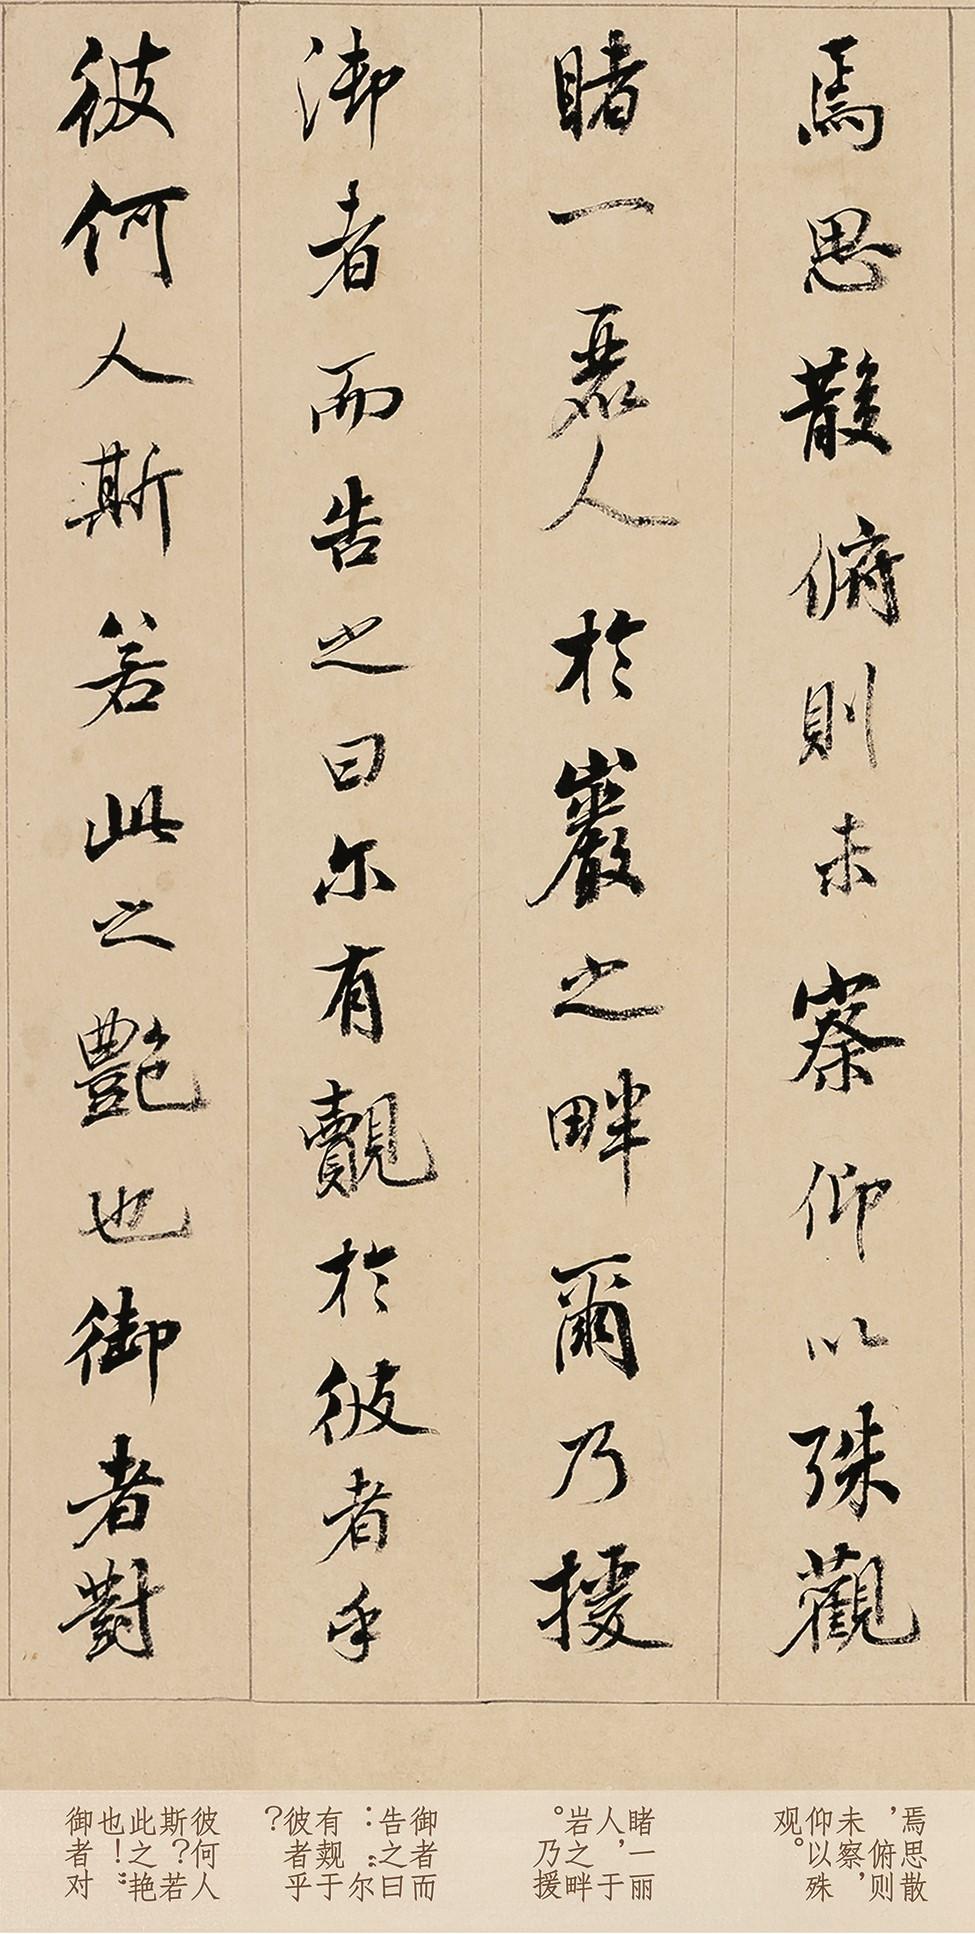 焉思散俯則未察仰以殊觀
睹一麗人於巖之畔爾乃援
御者而告之曰尔有覿於彼者乎
彼何人斯若此之艷也御者對
焉思散
，俯则
未察，
仰以殊
观。
睹一丽
人，于
岩之畔
。乃援
御者而
告之曰
：“尔
有觌于
彼者乎
？
彼何人
斯？若
此之艳
也！”
御者对